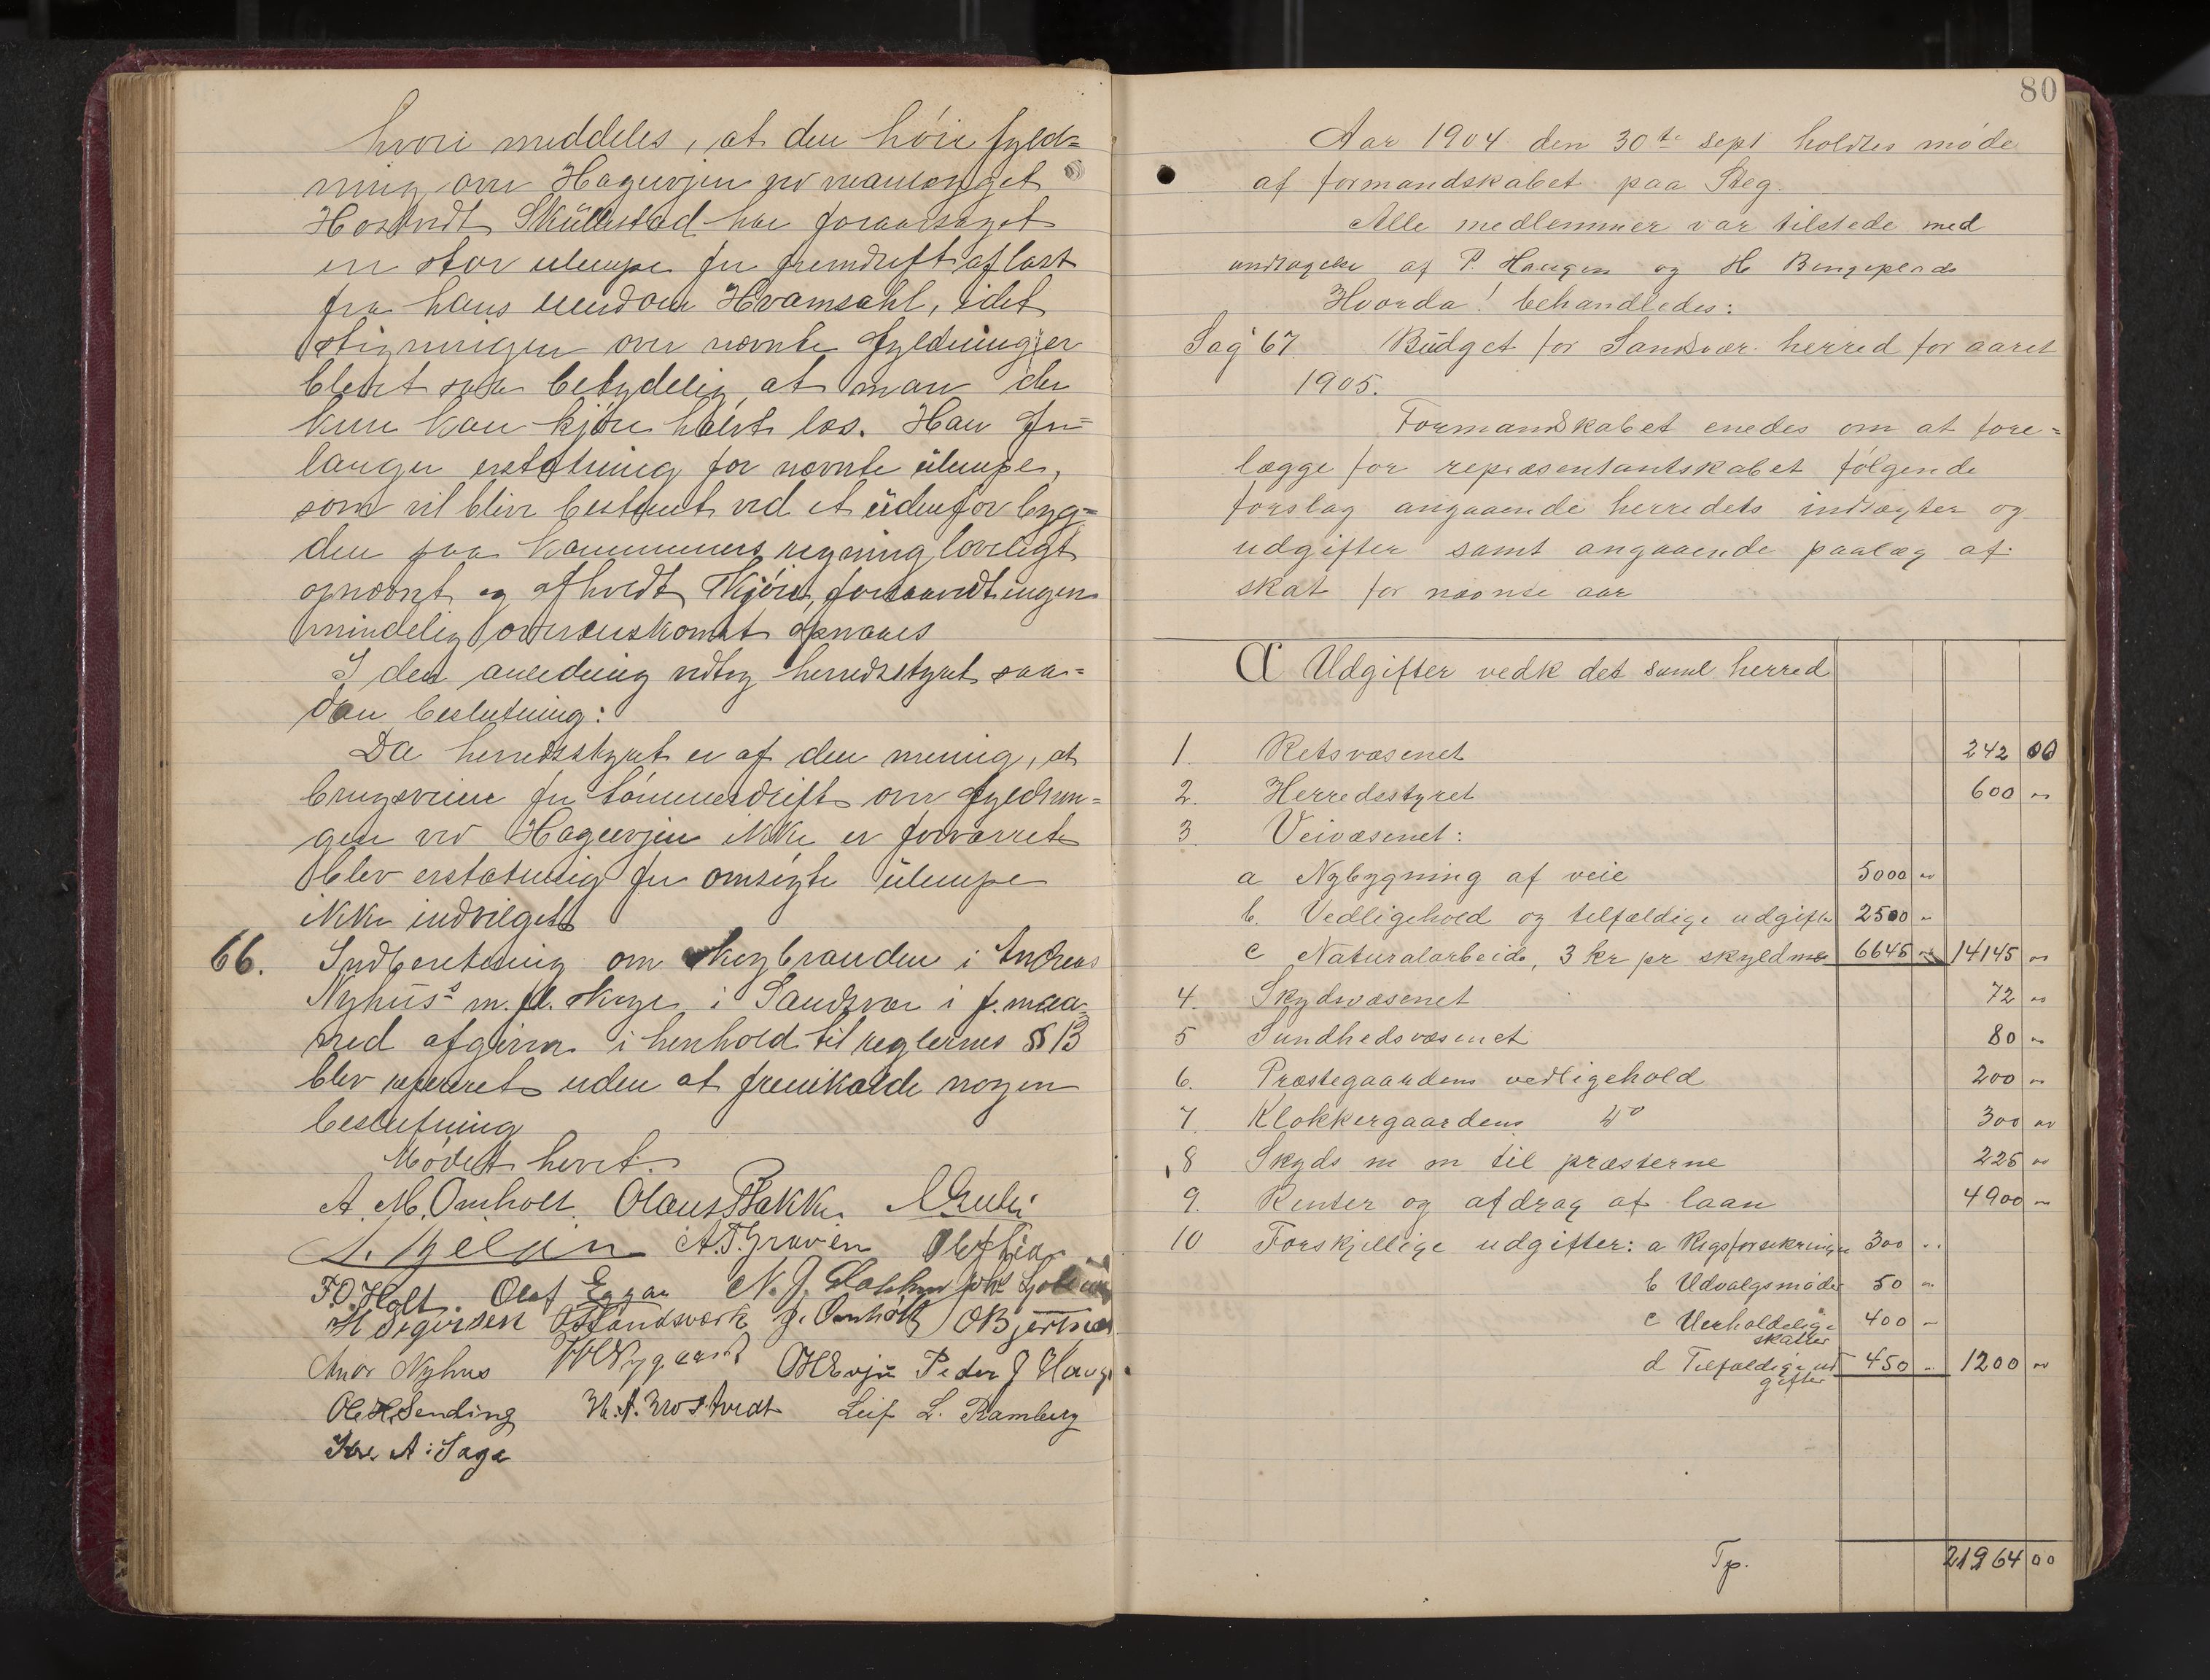 hvori meddeles, at den høie fyld=
ning over Hagevjen ved veianlægget
Hostvedt Sküllestad har foraarsaget
en stor ulempe for fremdrift af last
fra hans eiendom Hvamsahl, idet
stigningen over nævnte fyldning er
blevet saa betydelig, at man der
kun kan kjøre halvt læs. Han for=
langer erstatning for nævnte ülempe,
som vil blive bestemt ved et üdenfor byg=
den paa kommunens regning loveligt
opnævnt og afholdt skjøn, forsaavidt ingen
mindelig overenskomst opnaaes
I den anledning vedtog herredsstyret saa=
dan beslutning:
Da herredsstyret er af den mening, at
brugsveien for tømmerdrift over fyldnin=
gen ved Hagevjen ikke er forværret
blev erstatning for omsøgte ülempe
ikke indvilget
66. Indberetning om skogbranden i Andreas
Nyhüs's m. fl. skoge i Sandsvær i f. maa=
ned afgiven i henhold til reglernes § 13
blev refereret uden at fremkalde nogen
beslutning
Mødet hevet.
A. M. Omholt. Olaus Bakke.
A. T. Graven
F. O. Holt. Olaf Eggar N. J.
H Segersen Omholt O Bjertnæs
Anor Nyhus W Nygaard OH Evju Peder J Haug
Ole H. Sending H. A. Rostvedt Leif L. Ramberg
Iver A: Saga
80
Aar 1904 den 30te sept holdtes møde
af formandskabet paa Steg.
Alle medlemmer var tilstede med
undtagelse af P. Haugen og H
Hvorda! behandledes:
Sag 67. Büdget for Sandsvær herred for aaret
1905.
Formandskabet enedes om at fore=
lægge for repræsentantskabet følgende
forslag angaaende herredets indtægter og
udgifter samt angaaende paalæg af
skat for nævnte aar
A Udgifter vedk det saml. herred
1. Retsvæsenet 242 00
2. Herredsstyret 600 "
3. Veivæsenet:
a Nybygning af veie 5000 "
b. Vedligehold og tilfældige udgifter 2500 "
c Naturalarbeide, 3 kr pr skyldma 6645 " 14145 "
4. Skydsvæsenet 72 "
5 Sundhedsvæsenet 80 "
6. Præstegaardens vedligehold 200 "
7. Klokkergaardens do 300 "
8 Skyds m m til præsterne 225 "
9. Renter og afdrag af laan 4900 "
10 Forskjellige udgifter: a Rigsforsikringen 300 "
b Udvalgsmøder 50 "
c Uerholdelige skatter 400 "
d Tilfældige ud
gifter 450 " 1200 "
Tp. 21964 00